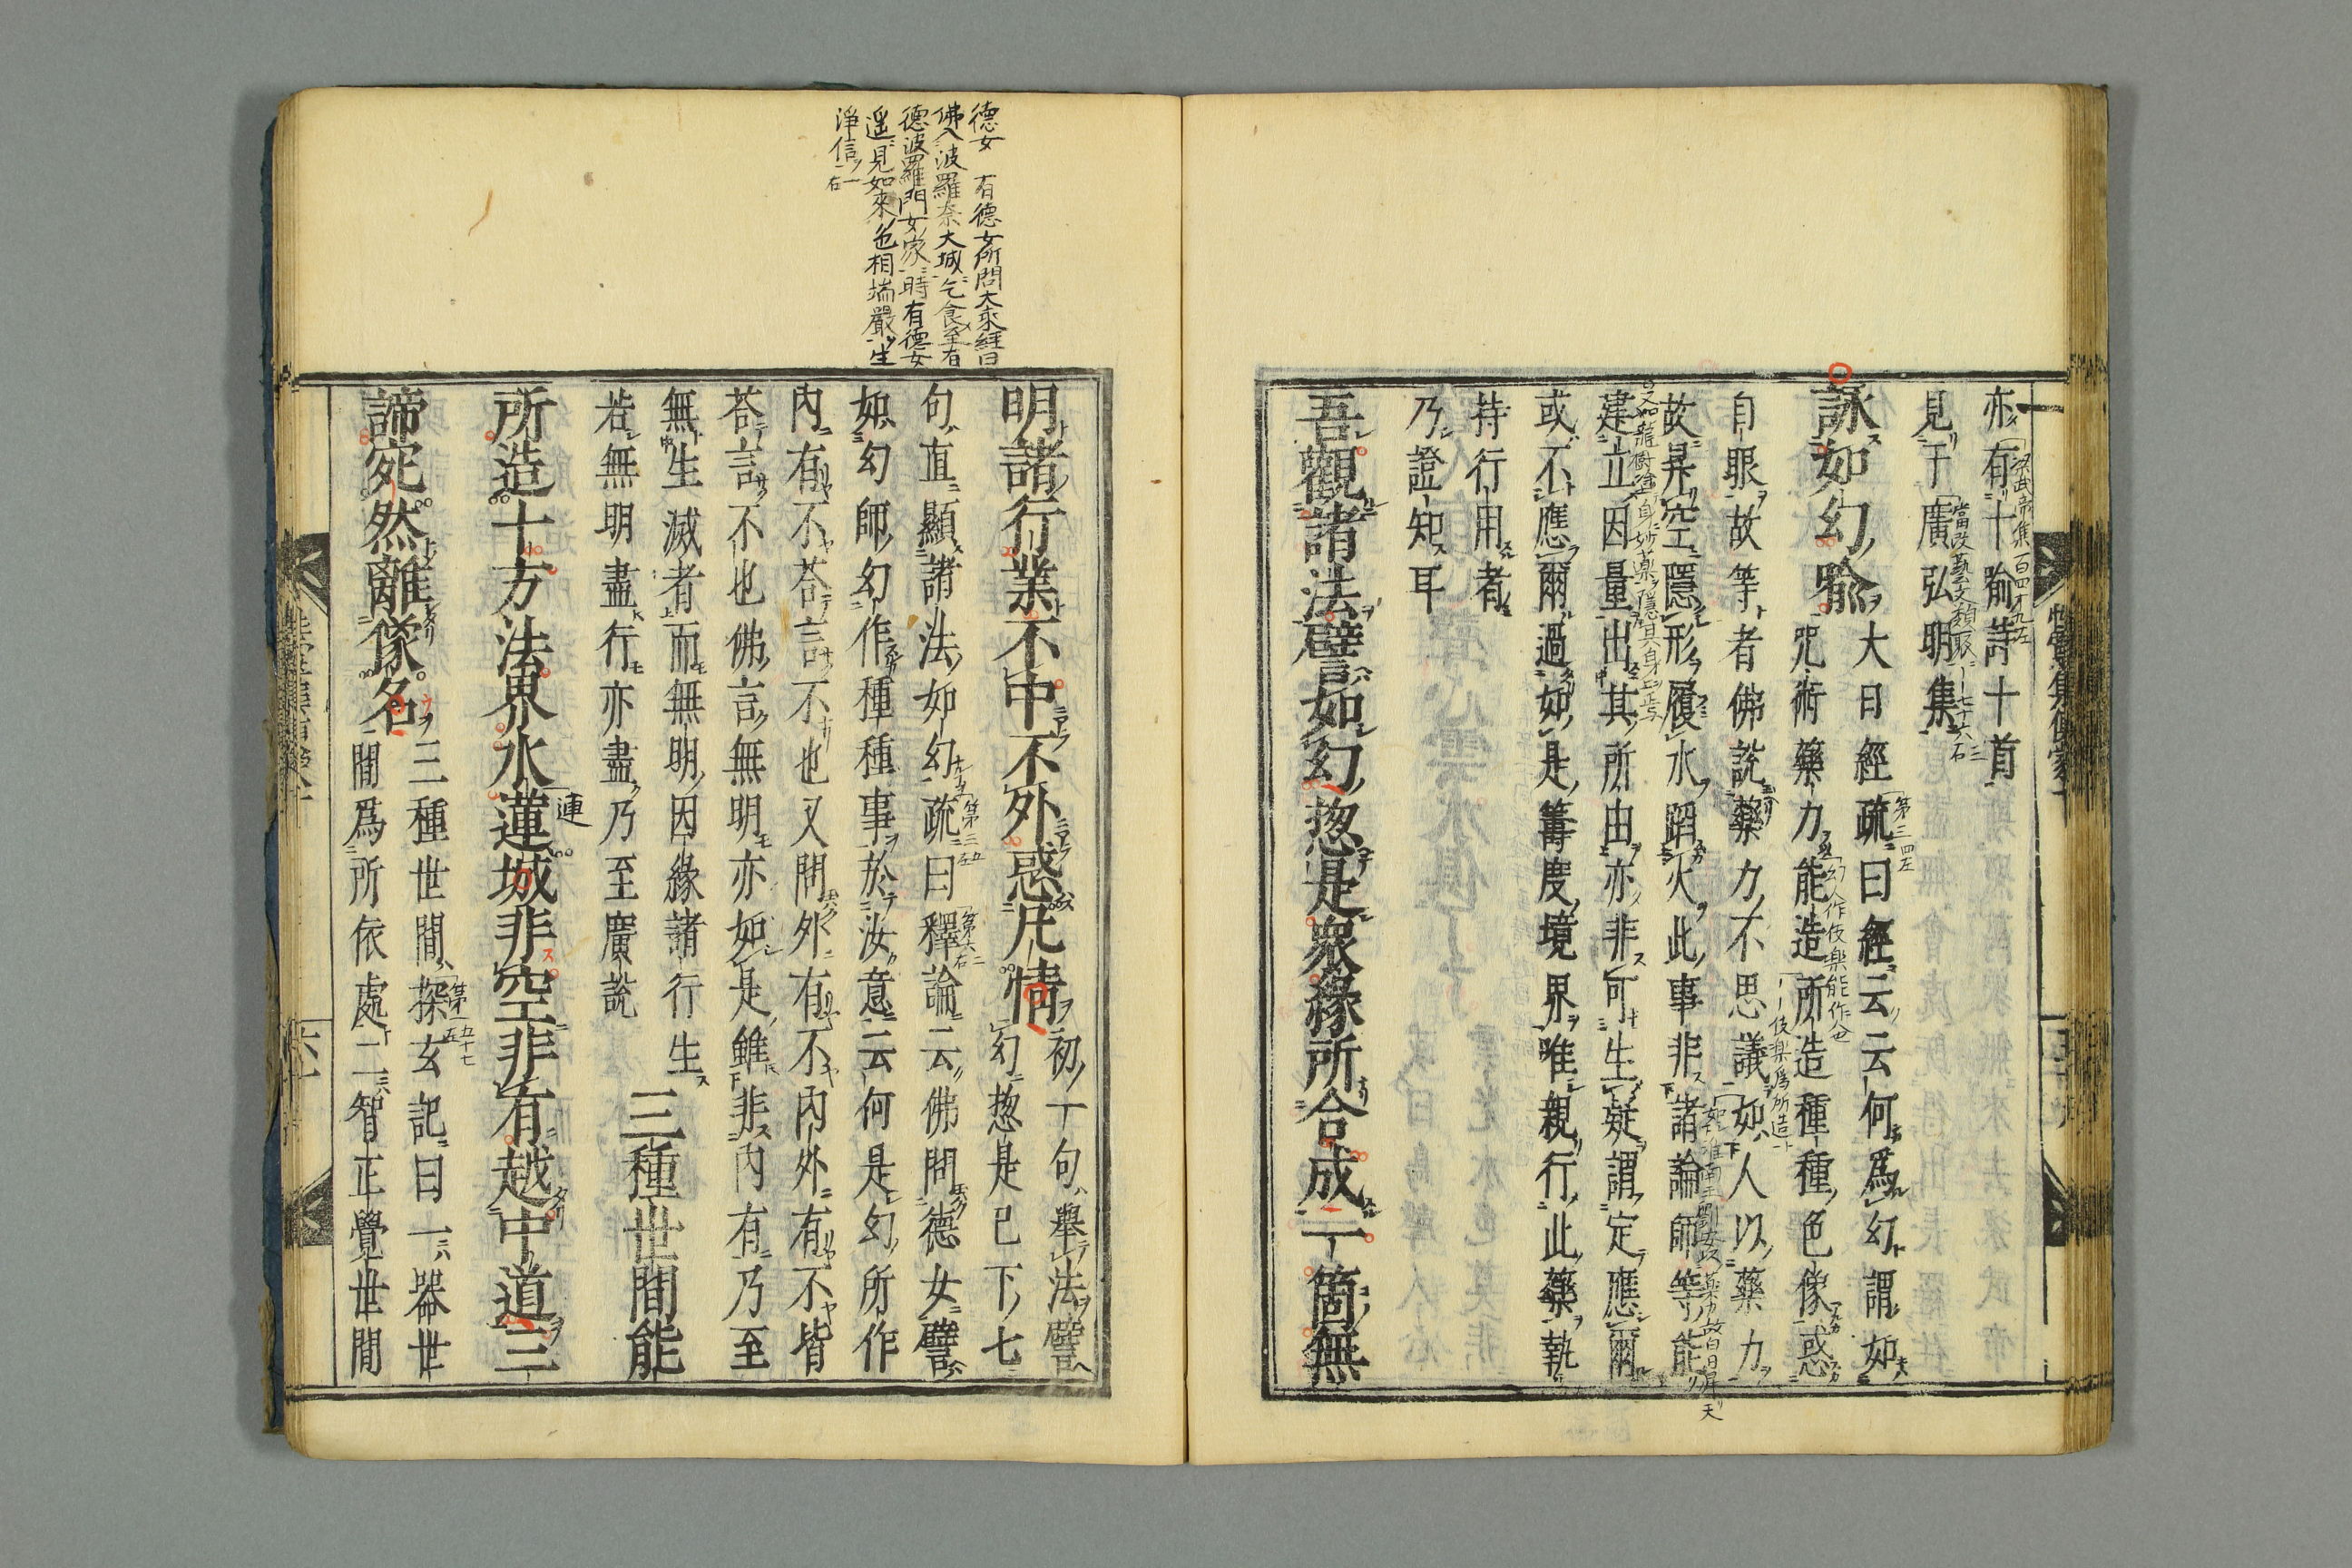 亦有十喻詩十首
見于廣弘明集
詠如幻喻 大日經疏曰經云云何爲幻謂如
咒術藥力能造所造種種色像惑
自眼故等者佛説藥力不思議如人以藥力
故昇空隱形履水蹈火此事非諸論師等能
建立因量出其所由亦非可生疑謂定應爾
或不應爾過如是籌度境界唯親行此藥執
持行用者
乃證知耳
吾觀諸法譬如幻惣是衆緣所合成一箇無
明諸行業不中不外惑凡情 初一句擧法譬
幻惣是已下七
句直顯諸法如幻疏曰釋論云佛問德女譬
如幻師幻作種種事於汝意云何是幻所作
内有不荅言不也又問外有不内外有不皆
荅言不也佛言無明亦如是雖非内有乃至
無生滅者而無明因緣諸行生 三種世間能
若無明盡行亦盡乃至廣説
所造十方法界水蓮城非空非有越中道三
諦宛然離像名 三種世間探玄記曰一器世
間爲所依處二智正覺世間
德女 有德女所問大乘經曰
佛入波羅奈大城乞食至有
德波羅門女家時有德女
遥見如來色相端嚴生
淨信
連